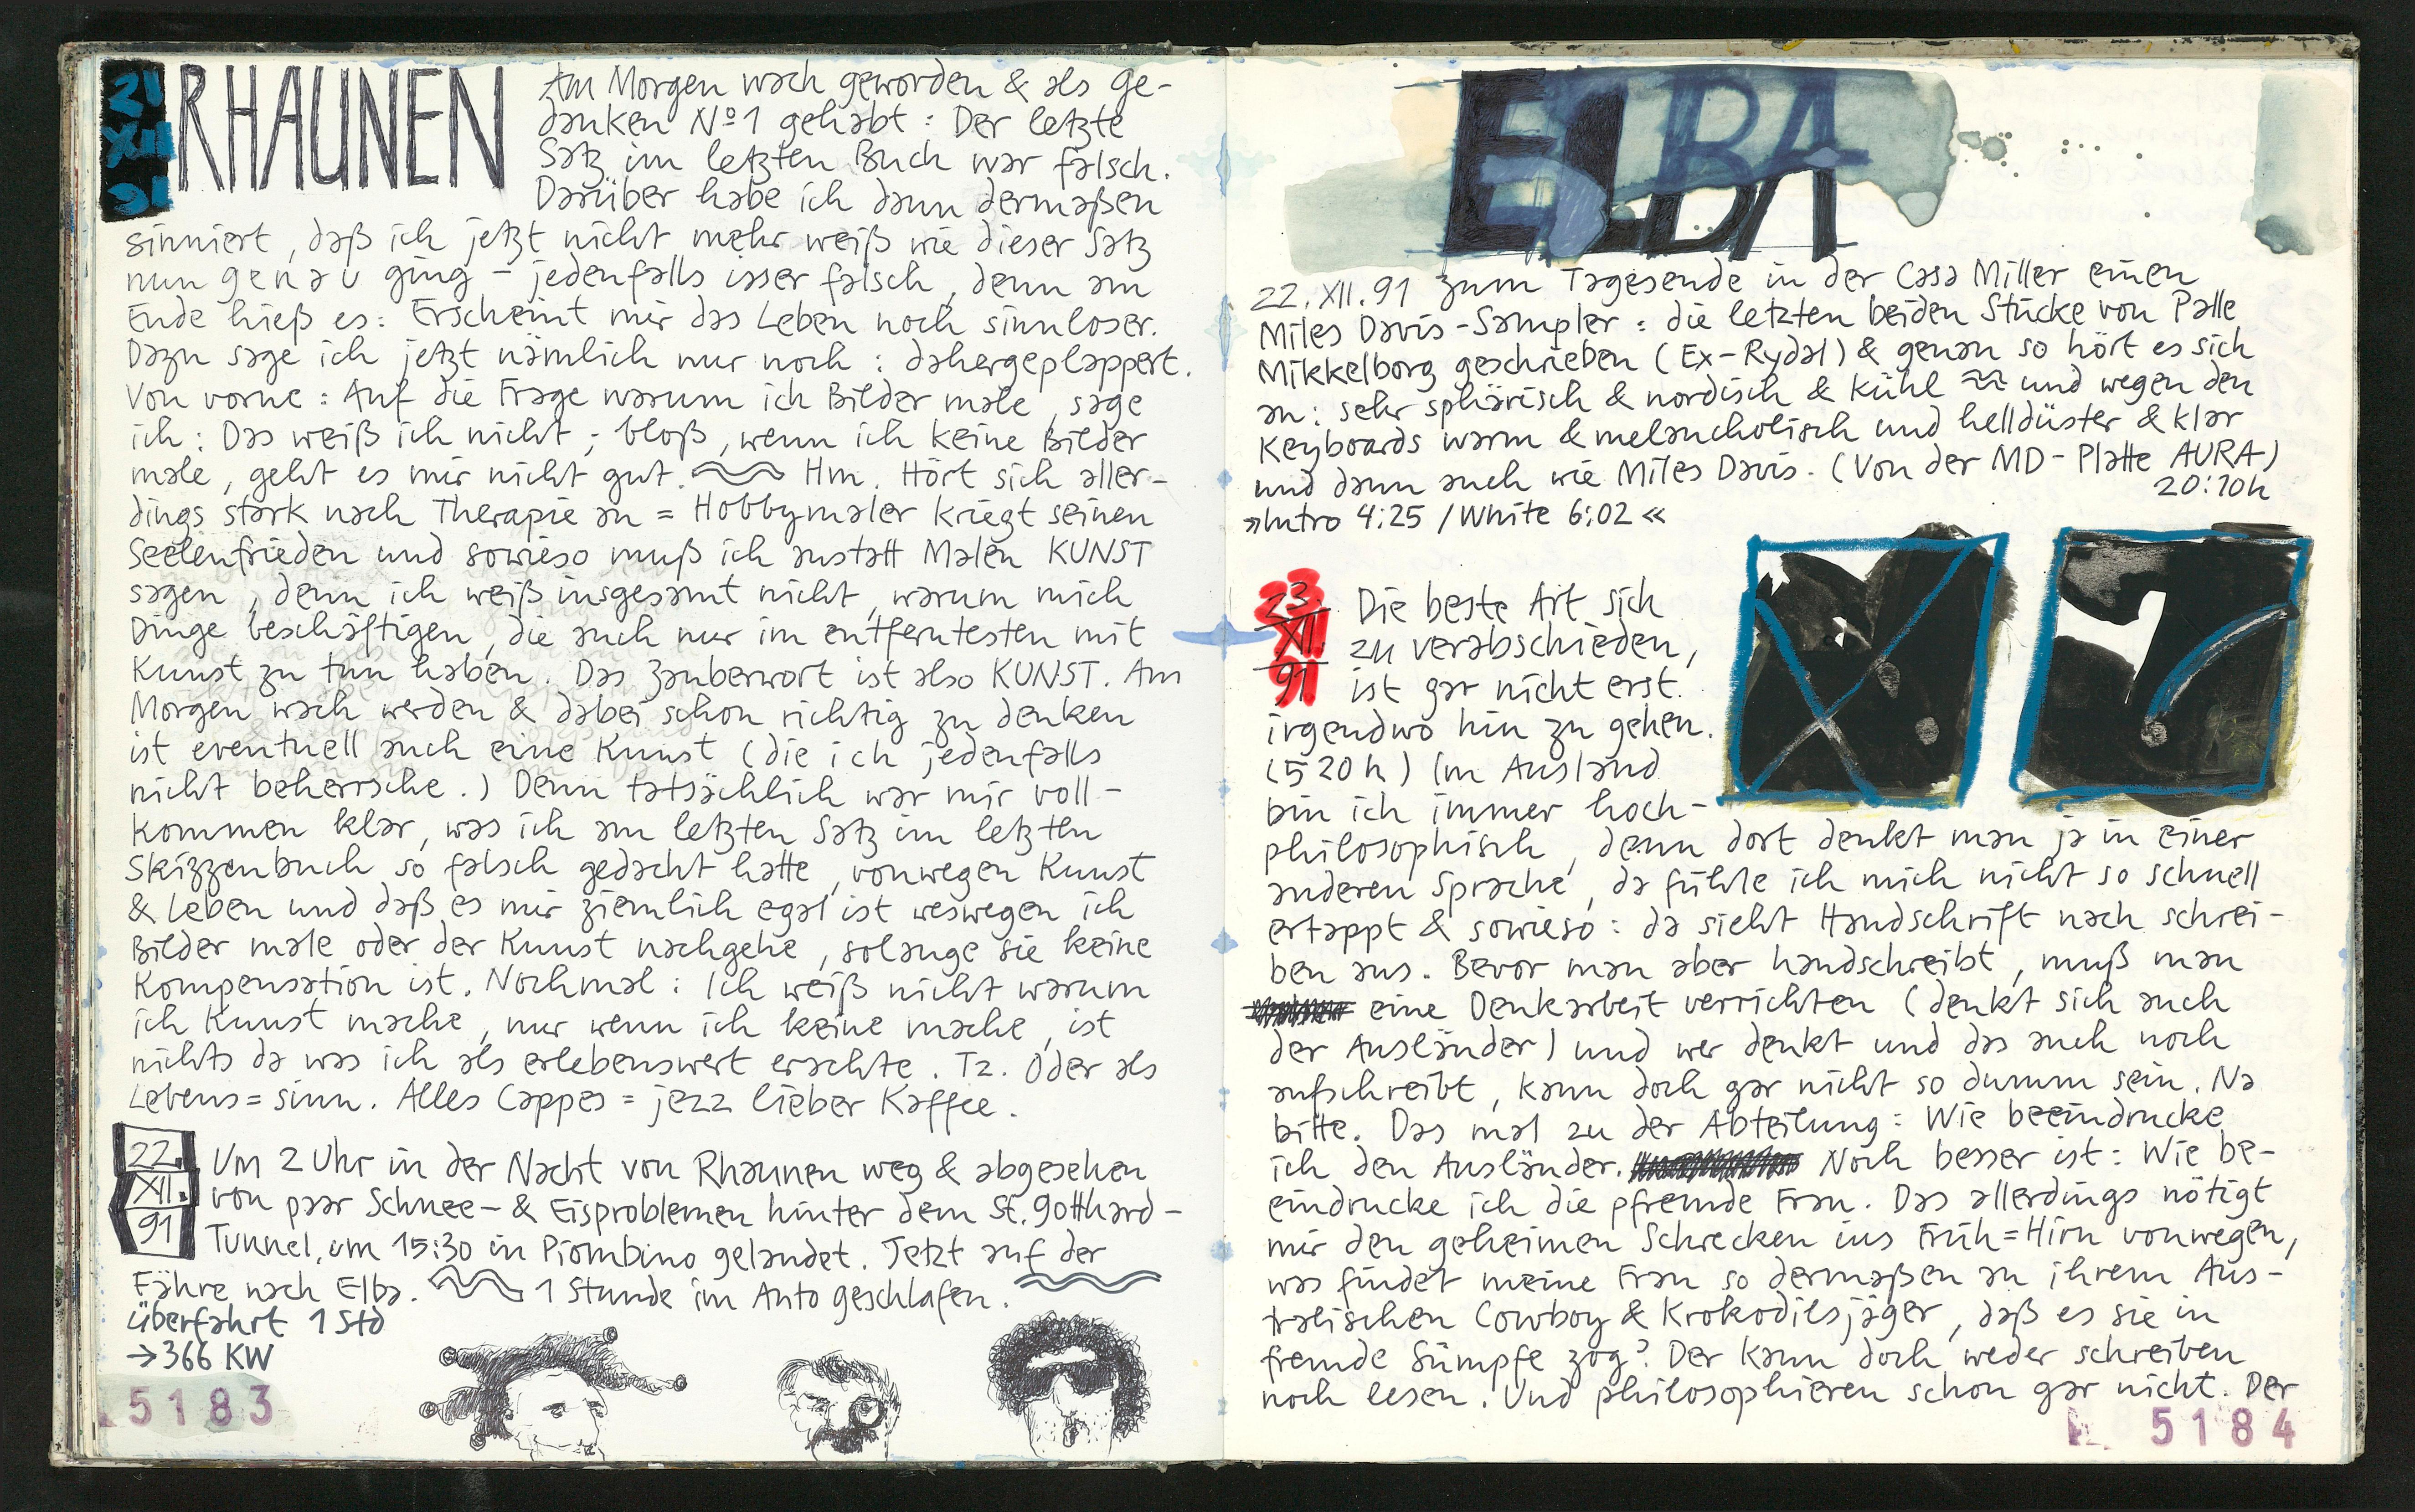 21
XII
91
RHAUNEN
Am Morgen wach geworden & als Ge-
danken Nº1 gehabt: Der letzte
Satz im letzten Buch war falsch.
Darüber habe ich dann dermaßen
sinniert, daß ich jetzt nicht mehr weiß wie dieser Satz
nun genau ging – jedenfalls isser falsch, denn am
Ende hieß es: Erscheint mir das Leben noch sinnloser.
Dazu sage ich jetzt nämlich nur noch: dahergeplappert.
Von vorne: Auf die Frage warum ich Bilder male, sage
ich: Das weiß ich nicht; bloß, wenn ich keine Bilder
male, geht es mir nicht gut. Hm. Hört sich aller-
dings stark nach Therapie an = Hobbymaler kriegt seinen
Seelenfrieden und sowieso muß ich anstatt Malen KUNST
sagen, denn ich weiß insgesamt nicht, warum mich
Dinge beschäftigen, die auch nur im entferntesten mit
Kunst zu tun haben. Das Zauberwort ist also KUNST. Am
Morgen wach werden & dabei schon richtig zu denken
ist eventuell auch eine Kunst (die ich jedenfalls
nicht beherrsche.) Denn tatsächlich war mir voll-
kommen klar, was ich am letzten Satz im letzten
Skizzenbuch so falsch gedacht hatte, vonwegen Kunst
& Leben und daß es mir ziemlich egal ist weswegen ich
Bilder male oder der Kunst nachgehe, solange sie keine
Kompensation ist. Nochmal: Ich weiß nicht warum
ich Kunst mache, nur wenn ich keine mache, ist
nichts da was ich als erlebenswert erachte. Tz. Oder als
Lebens=sinn. Alles Cappes = jezz lieber Kaffee.
22.
XII.
91
Um 2 Uhr in der Nacht von Rhaunen weg & abgesehen
von paar Schnee- & Eisproblemen hinter dem St. Gotthard-
Tunnel, um 15:30 in Piombino gelandet. Jetzt auf der
Fähre nach Elba. 1 Stunde im Auto geschlafen.
Überfahrt 1 Std
→ 366 KW
5183
ELBA
22.XII.91 Zum Tagesende in der Casa Miller einen
Miles Davis-Sampler: die letzten beiden Stücke von Palle
Mikkelborg geschrieben (Ex-Rydal) & genau so hört es sich
an: sehr sphärisch & nordisch & kühl und wegen den
Keyboards warm & melancholisch und helldüster & klar
und dann auch wie Miles Davis. (Von der MD-Platte AURA)
20:10h
»Intro 4:25 / White 6:02«
23.
XII.
91
Die beste Art sich
zu verabschieden,
ist gar nicht erst
irgendwo hin zu gehen.
(5 20 h) Im Ausland
bin ich immer hoch-
philosophisch, denn dort denkt man ja in einer
anderen Sprache, da fühle ich mich nicht so schnell
ertappt & sowieso: da sieht Handschrift nach schrei-
ben aus. Bevor man aber handschreibt, muß man
eine Denkarbeit verrichten (denkt sich auch
der Ausländer) und wer denkt und das auch noch
aufschreibt, kann doch gar nicht so dumm sein. Na
bitte. Das mal zu der Abteilung: Wie beeindrucke
ich den Ausländer. Noch besser ist: Wie be-
eindrucke ich die pfremde Frau. Das allerdings nötigt
mir den geheimen Schrecken ins Früh=Hirn vonwegen,
was findet meine Frau so dermaßen an ihrem Aus-
tralischen Cowboy & Krokodilsjäger, daß es sie in
fremde Sümpfe zog? Der kann doch weder schreiben
noch lesen. Und philosophieren schon gar nicht. Der
5184